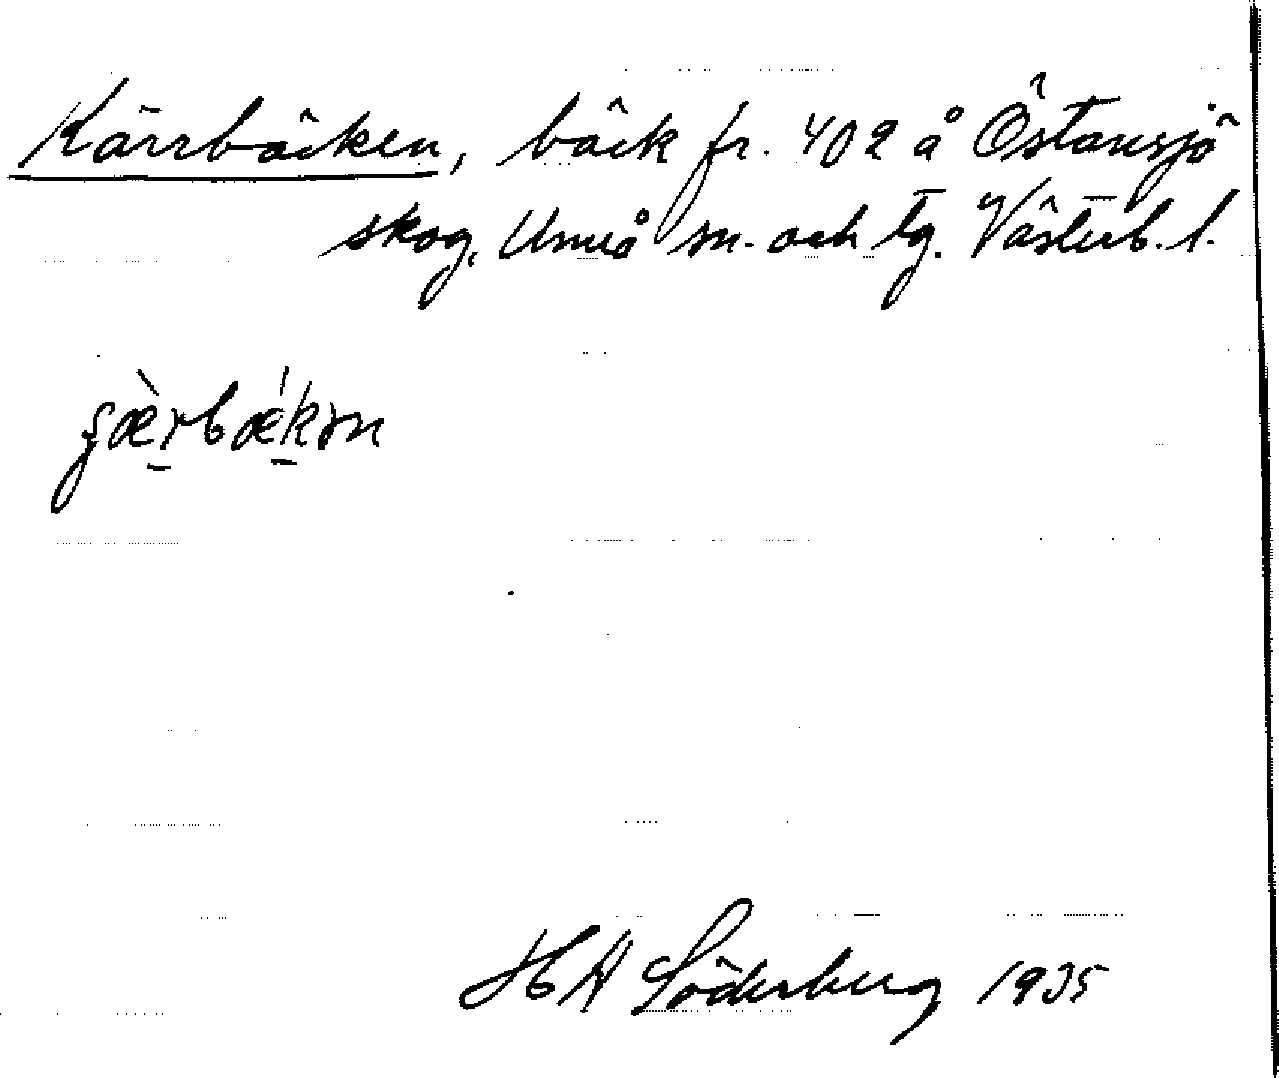 Kärrbäcken, bäck fr. 402 å Östansjö
skog, Umeå sn. och tg. Västerb. l.
H A Söderberg 1935